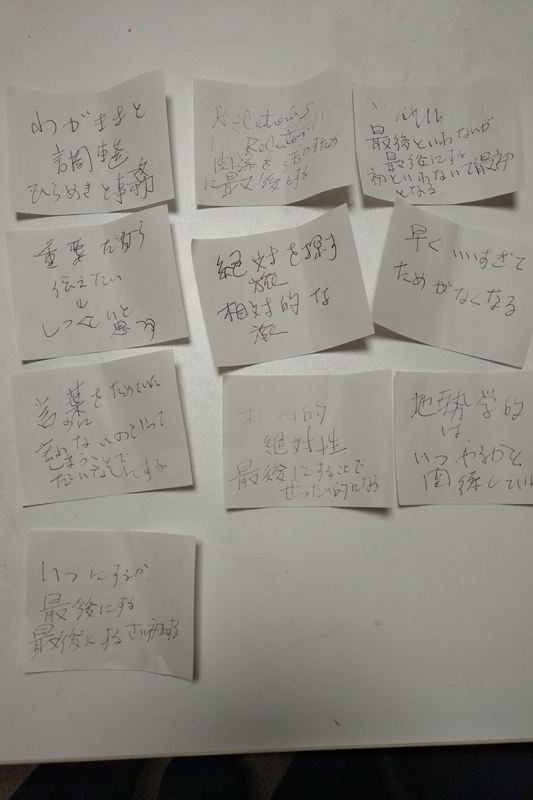 わがままと
調整
ひらめきと事務
Relations
Relational
関係を活かすため
に最後とする
最後といわないが
最後にする
初といわないで最初
となる
重葉
伝えたい
↓
しつこいと思う
絶対を探す
旅
相対的な
旅
早くいいすぎて
ためがなくなる
言葉をためていた
のに
言わないのといって
しまうことで
だいなしにする
絶対性
最後にすることで
ぜったい的になる
地勢学的
は
いつやるかと
関係している
いつにするか
最後にする
最後にする